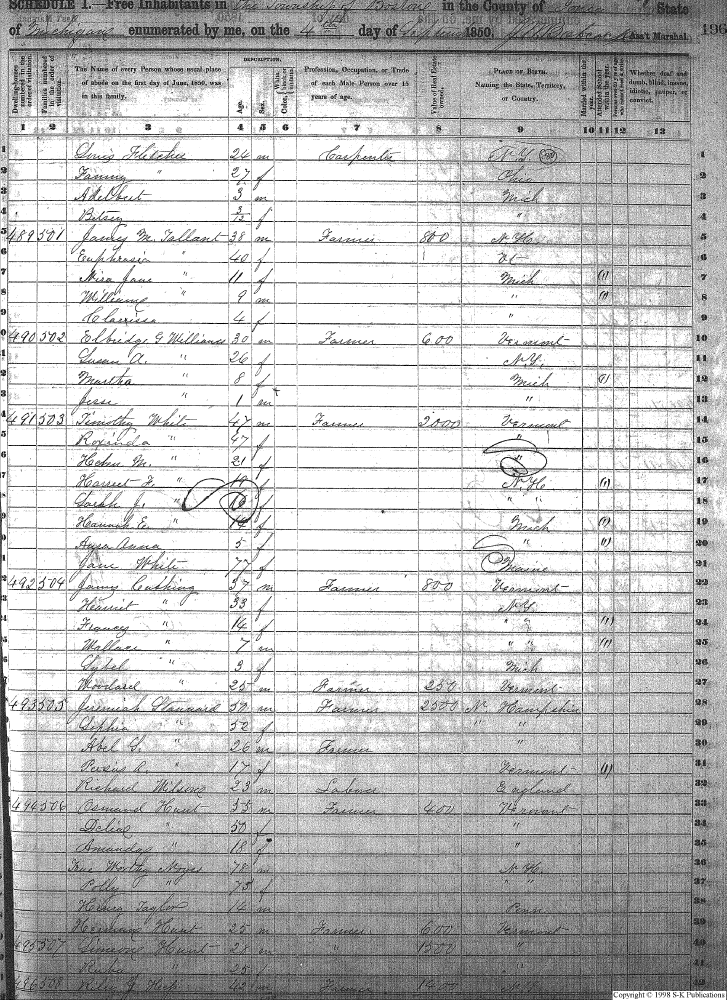 SCHEDULE I.—Free Inhabitants in the Township of Boston in the County of Ionia State
of Michigan enumerated by me, on the 4th day of September 1850. Ass't Marshal. 196
Dwelling-houses numbered in the order of visitation.
Families numbered in the order of visitation.
The Name of every Person whose usual place of abode on the first day of June, 1850, was in this family.
DESCRIPTION.
Age.
Sex.
Color, White, black, or mulatto.
Profession, Occupation, or Trade of each Male Person over 15 years of age.
Value of Real Estate owned.
PLACE OF BIRTH. Naming the State, Territory, or Country.
Married within the year.
Attended School within the year.
Whether deaf and dumb, blind, insane, idiotic, pauper, or convict.
1 2 3 4 5 6 7 8 9 10 11 12 13
1 Fletcher 24 m Carpenter N.Y. 1
2 " 27 f Ohio 2
3 Adelbert 3 m Mich 3
4 Betsey 3/12 f " 4
5 489 501 James M. Tallant 38 m Farmer 800 N.H. 5
6 Euphrasia " 40 f Vt 6
7 Jane " 11 f Mich (1) 7
8 William " 9 m " (1) 8
9 Clarissa " 4 f " 9
10 490 502 Elbridge G Williams 30 m Farmer 600 Vermont 10
11 Susan A. " 26 f N.Y. 11
12 Martha " 8 f Mich (1) 12
13 Jesse " 1 m " 13
14 491 503 Timothy White 47 m Farmer 2000 Vermont 14
15 " 47 f " 15
16 Helen M. " 21 f " 16
17 Harriet " f N.H. (1) 17
18 Sarah J. " 16 f " " 18
19 Hannah E. " 14 f Mich (1) 19
20 Anna 5 f " (1) 20
21 Jane White 77 f Maine 21
22 492 504 James Cushing 37 m Farmer 800 Vermont 22
23 Harriet " 33 f N.Y. 23
24 Frances " 14 f " " (1) 24
25 Wallace " 7 m " " (1) 25
26 Sybel " 3 f Mich 26
27 Woodard " 25 m Farmer 250 Vermont 27
28 493 505 Jeremiah Stannard 50 m Farmer 2500 N. Hampshire 28
29 Sophia " 52 f " " 29
30 Abel G. " 26 m Farmer " 30
31 Persis R. " 17 f Vermont (1) 31
32 Richard Wilson 23 m Laborer England 32
33 494 506 Osmand Hunt 55 m Farmer 400 Vermont 33
34 " 50 f " 34
35 Amanda " 18 f " 35
36 Noyes 78 m N.H. 36
37 Polly " 75 f " " 37
38 Taylor 14 m Penn 38
39 Hunt 25 m Farmer 600 Vermont 39
40 495 507 Simeon Hunt 28 m " 1500 " 40
" 25 f "
496 508 42 m Farmer
Copyright © 1998 S-K Publications